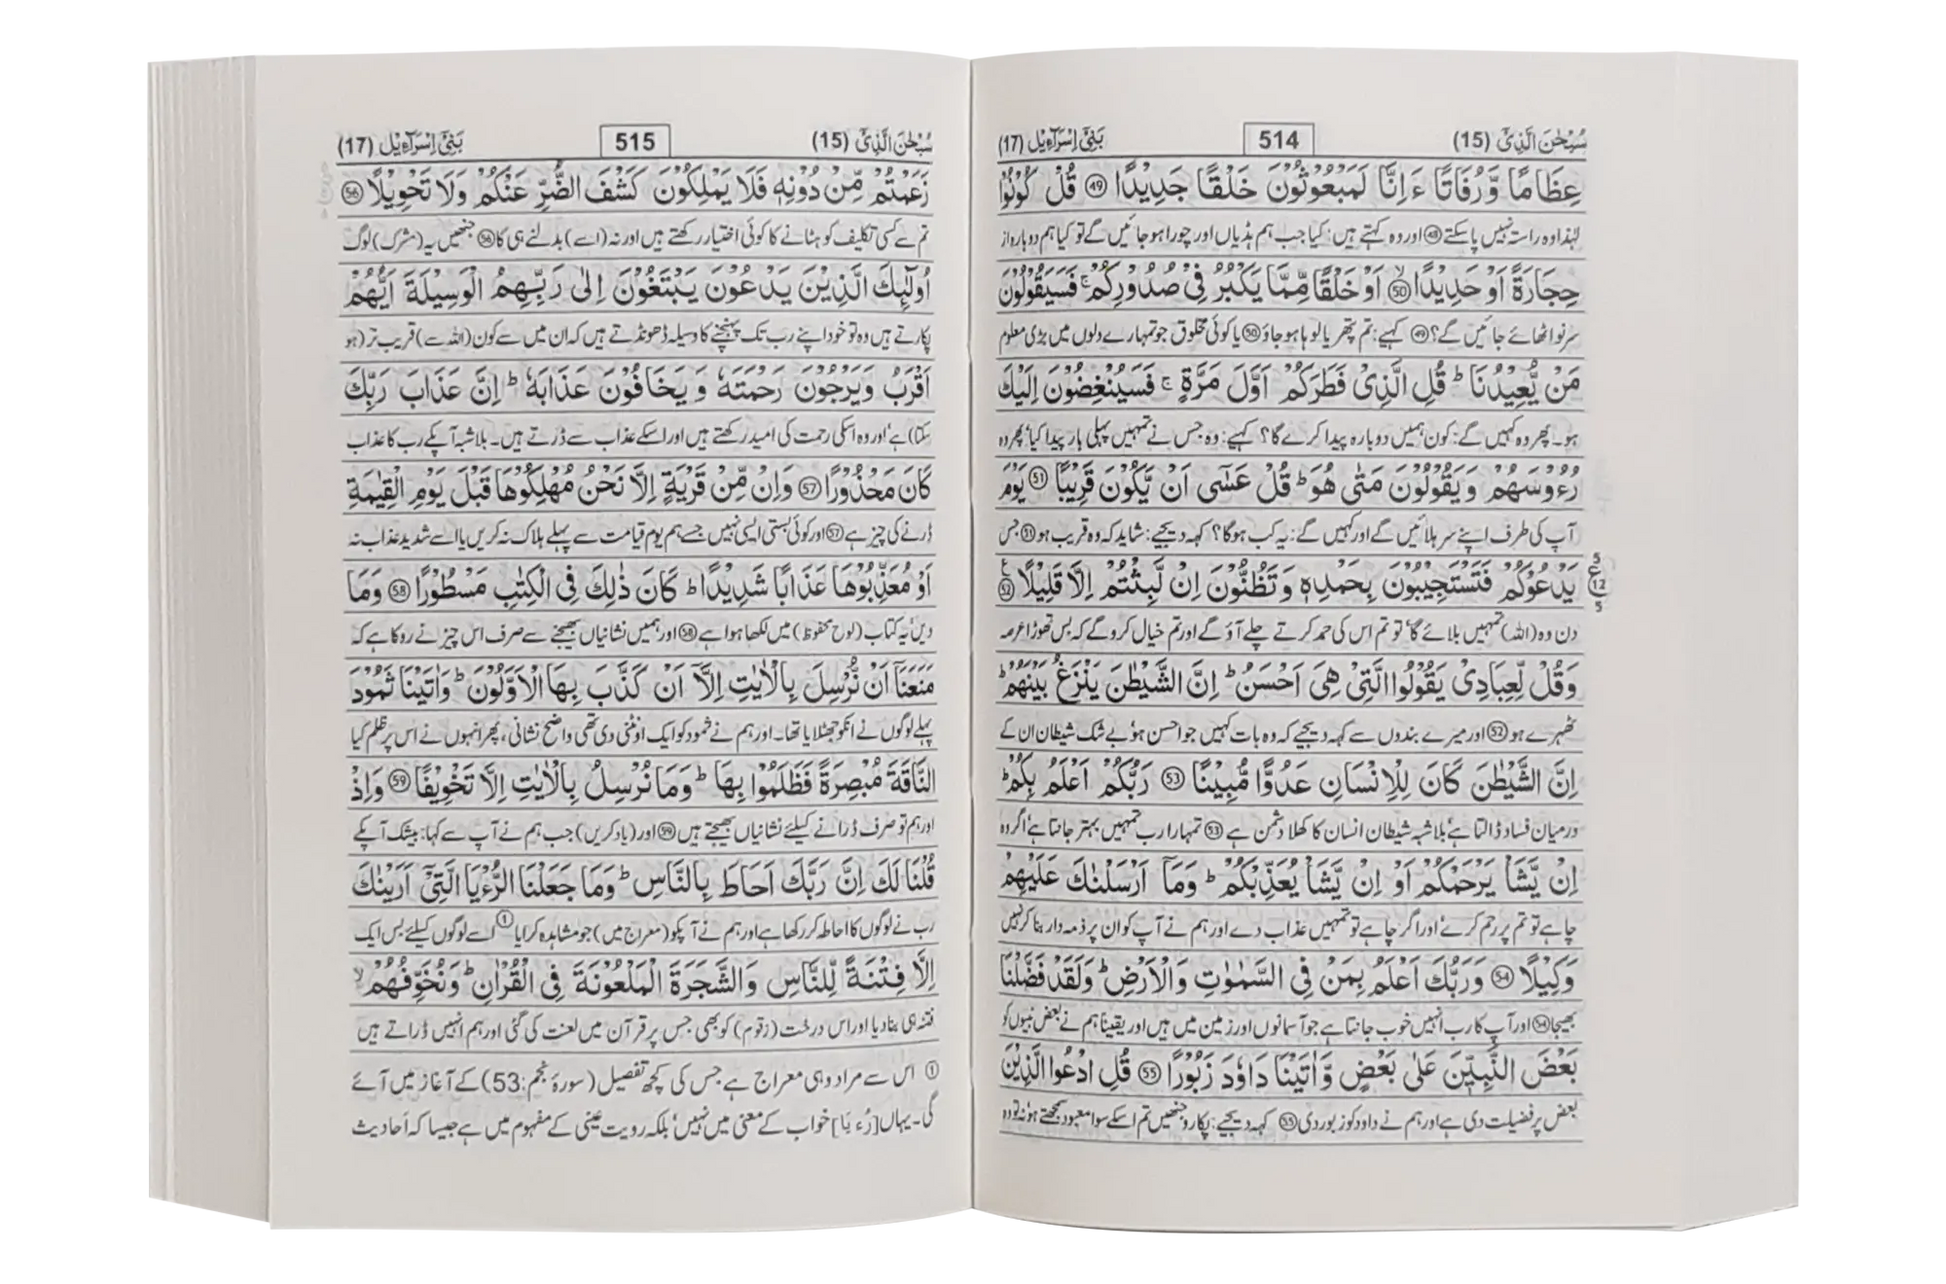 سُبْحٰنَ الَّذِیْ (15)
514
بَنِیْۤ اِسْرَآءِیْل (17)
عِظَامًا وَّرُفَاتًا ءَ اِنَّا لَمَبْعُوْثُوْنَ خَلْقًا جَدِیْدًا ㊾ قُلْ كُوْنُوْا
لہٰذا وہ راستہ نہیں پا سکتے ㊽ اور وہ کہتے ہیں: کیا جب ہم ہڈیاں اور چورا ہو جائیں گے تو کیا ہم دوبارہ از
حِجَارَةً اَوْ حَدِیْدًا ㊿ اَوْ خَلْقًا مِّمَّا یَكْبُرُ فِیْ صُدُوْرِكُمْ ۚ فَسَیَقُوْلُوْنَ
سر نو اٹھائے جائیں گے؟ ㊾ کہیے: تم پتھر یا لوہا ہو جاؤ ㊿ یا کوئی مخلوق جو تمہارے دلوں میں بڑی معلوم
مَنْ یُّعِیْدُنَا ؕ قُلِ الَّذِیْ فَطَرَكُمْ اَوَّلَ مَرَّةٍ ۚ فَسَیُنْغِضُوْنَ اِلَیْكَ
ہو۔ پھر وہ کہیں گے: کون ہمیں دوبارہ پیدا کرے گا؟ کہیے: وہ جس نے تمہیں پہلی بار پیدا کیا‘ پھر وہ
رُءُوْسَهُمْ وَ یَقُوْلُوْنَ مَتٰی هُوَ ؕ قُلْ عَسٰۤی اَنْ یَّكُوْنَ قَرِیْبًا (51) یَوْمَ
آپ کی طرف اپنے سر ہلائیں گے اور کہیں گے: یہ کب ہوگا؟ کہہ دیجیے: شاید کہ وہ قریب ہو (51) جس
یَدْعُوْكُمْ فَتَسْتَجِیْبُوْنَ بِحَمْدِهٖ وَ تَظُنُّوْنَ اِنْ لَّبِثْتُمْ اِلَّا قَلِیْلًا (52) ع
5
12
5
دن وہ (اللہ) تمہیں بلائے گا‘ تو تم اس کی حمد کرتے چلے آؤ گے اور تم خیال کرو گے کہ بس تھوڑا عرصہ
وَ قُلْ لِّعِبَادِیْ یَقُوْلُوا الَّتِیْ هِیَ اَحْسَنُ ؕ اِنَّ الشَّیْطٰنَ یَنْزَغُ بَیْنَهُمْ ؕ
ٹھہرے ہو (52) اور میرے بندوں سے کہہ دیجیے کہ وہ بات کہیں جو احسن ہو‘ بے شک شیطان ان کے
اِنَّ الشَّیْطٰنَ كَانَ لِلْاِنْسَانِ عَدُوًّا مُّبِیْنًا (53) رَبُّكُمْ اَعْلَمُ بِكُمْ ؕ
درمیان فساد ڈالتا ہے‘ بلاشبہ شیطان انسان کا کھلا دشمن ہے (53) تمہارا رب تمہیں بہتر جانتا ہے‘ اگر وہ
اِنْ یَّشَاْ یَرْحَمْكُمْ اَوْ اِنْ یَّشَاْ یُعَذِّبْكُمْ ؕ وَ مَاۤ اَرْسَلْنٰكَ عَلَیْهِمْ
چاہے تو تم پر رحم کرے‘ اور اگر چاہے تو تمہیں عذاب دے اور ہم نے آپ کو ان پر ذمہ دار بنا کر نہیں
وَكِیْلًا (54) وَ رَبُّكَ اَعْلَمُ بِمَنْ فِی السَّمٰوٰتِ وَ الْاَرْضِ ؕ وَ لَقَدْ فَضَّلْنَا
بھیجا (54) اور آپ کا رب انہیں خوب جانتا ہے جو آسمانوں اور زمین میں ہیں اور یقیناً ہم نے بعض نبیوں کو
بَعْضَ النَّبِیّٖنَ عَلٰی بَعْضٍ وَّ اٰتَیْنَا دَاوٗدَ زَبُوْرًا (55) قُلِ ادْعُوا الَّذِیْنَ
بعض پر فضیلت دی ہے اور ہم نے داود کو زبور دی (55) کہہ دیجیے: پکارو جنھیں تم اسکے سوا معبود سمجھتے ہو‘ تو وہ
سُبْحٰنَ الَّذِیْ (15)
515
بَنِیْۤ اِسْرَآءِیْل (17)
زَعَمْتُمْ مِّنْ دُوْنِهٖ فَلَا یَمْلِكُوْنَ كَشْفَ الضُّرِّ عَنْكُمْ وَ لَا تَحْوِیْلًا (56)
تم سے کسی تکلیف کو ہٹانے کا کوئی اختیار رکھتے ہیں اور نہ (اسے) بدلنے ہی کا (56) جنھیں یہ (مشرک) لوگ
اُولٰٓىِٕكَ الَّذِیْنَ یَدْعُوْنَ یَبْتَغُوْنَ اِلٰی رَبِّهِمُ الْوَسِیْلَةَ اَیُّهُمْ
پکارتے ہیں وہ تو خود اپنے رب تک پہنچنے کا وسیلہ ڈھونڈتے ہیں کہ ان میں سے کون (اللہ سے) قریب تر (ہو
اَقْرَبُ وَ یَرْجُوْنَ رَحْمَتَهٗ وَ یَخَافُوْنَ عَذَابَهٗ ؕ اِنَّ عَذَابَ رَبِّكَ
سکتا) ہے‘ اور وہ اسکی رحمت کی امید رکھتے ہیں اور اسکے عذاب سے ڈرتے ہیں۔ بلاشبہ آپکے رب کا عذاب
كَانَ مَحْذُوْرًا (57) وَ اِنْ مِّنْ قَرْیَةٍ اِلَّا نَحْنُ مُهْلِكُوْهَا قَبْلَ یَوْمِ الْقِیٰمَةِ
ڈرنے کی چیز ہے (57) اور کوئی بستی ایسی نہیں جسے ہم یوم قیامت سے پہلے ہلاک نہ کریں یا اسے شدید عذاب نہ
اَوْ مُعَذِّبُوْهَا عَذَابًا شَدِیْدًا ؕ كَانَ ذٰلِكَ فِی الْكِتٰبِ مَسْطُوْرًا (58) وَ مَا
دیں‘ یہ کتاب (لوح محفوظ) میں لکھا ہوا ہے (58) اور ہمیں نشانیاں بھیجنے سے صرف اس چیز نے روکا ہے کہ
مَنَعَنَاۤ اَنْ نُّرْسِلَ بِالْاٰیٰتِ اِلَّاۤ اَنْ كَذَّبَ بِهَا الْاَوَّلُوْنَ ؕ وَ اٰتَیْنَا ثَمُوْدَ
پہلے لوگوں نے انکو جھٹلایا تھا۔ اور ہم نے ثمود کو ایک اونٹنی دی تھی واضح نشانی، پھر انہوں نے اس پر ظلم کیا
النَّاقَةَ مُبْصِرَةً فَظَلَمُوْا بِهَا ؕ وَ مَا نُرْسِلُ بِالْاٰیٰتِ اِلَّا تَخْوِیْفًا (59) وَ اِذْ
اور ہم تو صرف ڈرانے کیلئے نشانیاں بھیجتے ہیں (59) اور (یاد کریں) جب ہم نے آپ سے کہا: بیشک آپکے
قُلْنَا لَكَ اِنَّ رَبَّكَ اَحَاطَ بِالنَّاسِ ؕ وَ مَا جَعَلْنَا الرُّءْیَا الَّتِیْۤ اَرَیْنٰكَ
رب نے لوگوں کا احاطہ کر رکھا ہے اور ہم نے آپکو (معراج میں) جو مشاہدہ کرایا ① اسے لوگوں کیلئے بس ایک
اِلَّا فِتْنَةً لِّلنَّاسِ وَ الشَّجَرَةَ الْمَلْعُوْنَةَ فِی الْقُرْاٰنِ ؕ وَ نُخَوِّفُهُمْ ۙ
فتنہ ہی بنا دیا اور اس درخت (زقوم) کو بھی جس پر قرآن میں لعنت کی گئی اور ہم انہیں ڈراتے ہیں
① اس سے مراد وہی معراج ہے جس کی کچھ تفصیل (سورۂ نجم:53) کے آغاز میں آئے
گی۔ یہاں [رُءْیَا] خواب کے معنی میں نہیں‘ بلکہ رویت عینی کے مفہوم میں ہے جیسا کہ احادیث